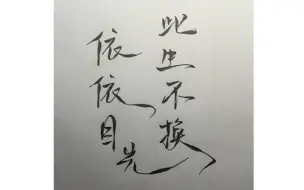 此生不换
依依目光